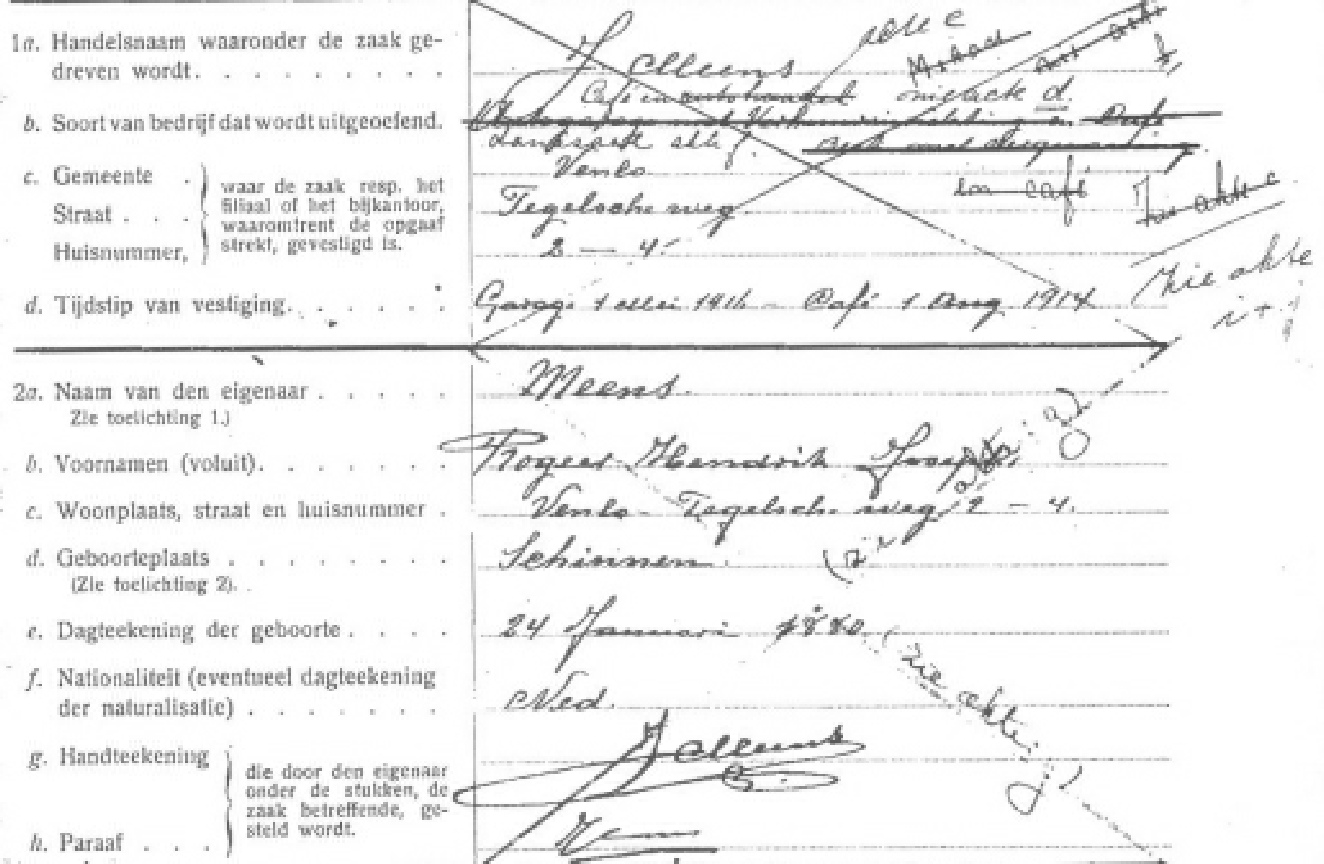 1a. Handelsnaam waaronder de zaak ge-
dreven wordt. . . . . . . . .
J Meens
akte c
Café en autohandel d.
b. Soort van bedrijf dat wordt uitgeoefend.
Café
c. Gemeente .
Straat . . .
Huisnummer,
waar de zaak resp. het
filiaal of het bijkantoor,
waaromtrent de opgaaf
strekt, gevestigd is.
Venlo
café
Tegelsche weg
akte c
2 — 4.
d. Tijdstip van vestiging. . . . . .
Garage 1 Mei 1916 – Café 1 Aug 1914
Zie akte
2a. Naam van den eigenaar . . . . .
Zie toelichting 1.)
Meens.
b. Voornamen (voluit). . . . . . .
Hendrik Joseph
c. Woonplaats, straat en huisnummer .
Venlo – Tegelsche weg 2 – 4.
d. Geboorteplaats . . . . . . . .
(Zie toelichting 2). .
Schinnen.
e. Dagteekening der geboorte . . . .
24 Januari 1880.
(zie akte
f. Nationaliteit (eventueel dagteekening
der naturalisatie) . . . . . . .
Ned.
g. Handteekening
J Meens
die door den eigenaar
onder de stukken, de
zaak betreffende, ge-
steld wordt.
h. Paraaf . . .